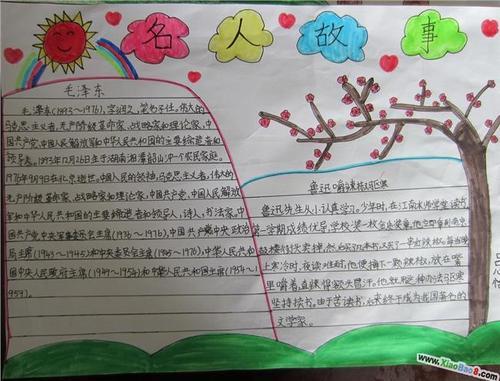 名人故事
毛泽东
毛泽东(1893~1976),字润之,笔名子任。伟大的
马克思主义者,无产阶级革命家、战略家和理论家,中
国共产党、中国人民解放军和中华人民共和国的主要缔造者和
领导者。1893年12月26日生于湖南湘潭韶山冲一个农民家庭。
1976年9月9日在北京逝世。中国人民的领袖,马克思主义者,伟大的
无产阶级革命家、战略家和理论家,中国共产党、中国人民解放
军和中华人民共和国的主要缔造者和领导人,诗人,书法家。中
国共产党中央军事委员会主席(1935~1976),中国共产党中央政治
局主席(1943~1945)和中央委员会主席(1945~1976),中华人民共和
国中央人民政府主席(1949~1954)和中华人民共和国主席(1954~1
959)。
鲁迅嚼辣椒驱寒
鲁迅先生从小认真学习。少年时,在江南水师学堂读书
第一学期成绩优异,学校奖一枚金质奖章。他立即拿到南京
鼓楼街头卖掉,然后买了几本书,又买了一串红辣椒。每当晚
上寒冷时,夜读难耐,他便摘下一颗辣椒,放在嘴
里嚼着,直辣得额头冒汗。他就用这种办法驱寒
坚持读书。由于苦读书,后来终于成为我国著名的
文学家。
www.XiaoBao8.com